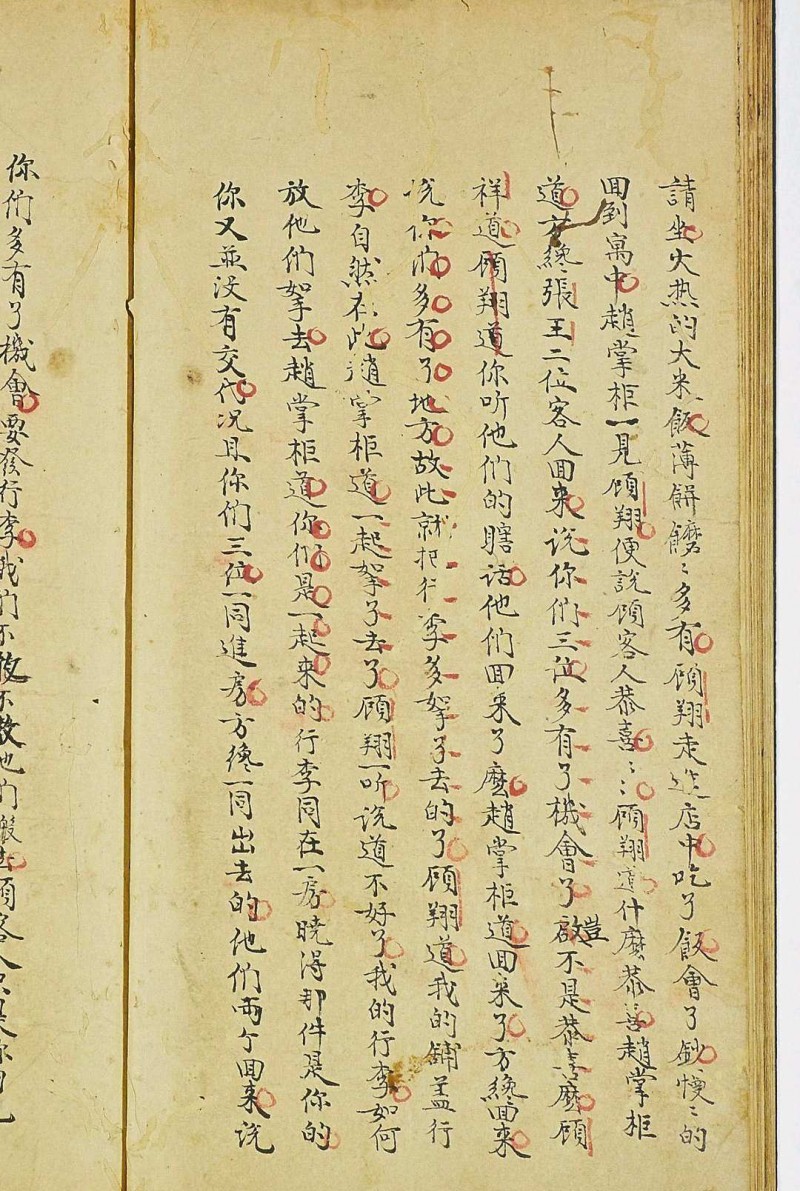 請坐火热的大米飯薄餅饝〻多有顧翔走進店中吃了飯會了鈔慢〻的
回到寓中趙掌柜一見顧翔便説顧客人恭喜〻〻顧翔道什麽恭喜趙掌柜
道方纔張王二位客人回来说你们三位多有了機會了豈不是恭喜麽顧
祥道顧翔道你听他们的瞎话他们回来了麽趙掌柜道回来了方纔回来
说你们多有了地方故此就把行李多拏了去的了顧翔道我的舖盖行
李自然在此趙掌柜道一起拏了去了顧翔一听说道不好了我的行李如何
放他们拏去趙掌柜道你们是一起来的行李同在一房曉得那件是你的
你又並没有交代况且你们三位一同進房方纔一同出去的他们两个回来说
你们多有了機會要發行李我们不放不教他们搬去顧客人